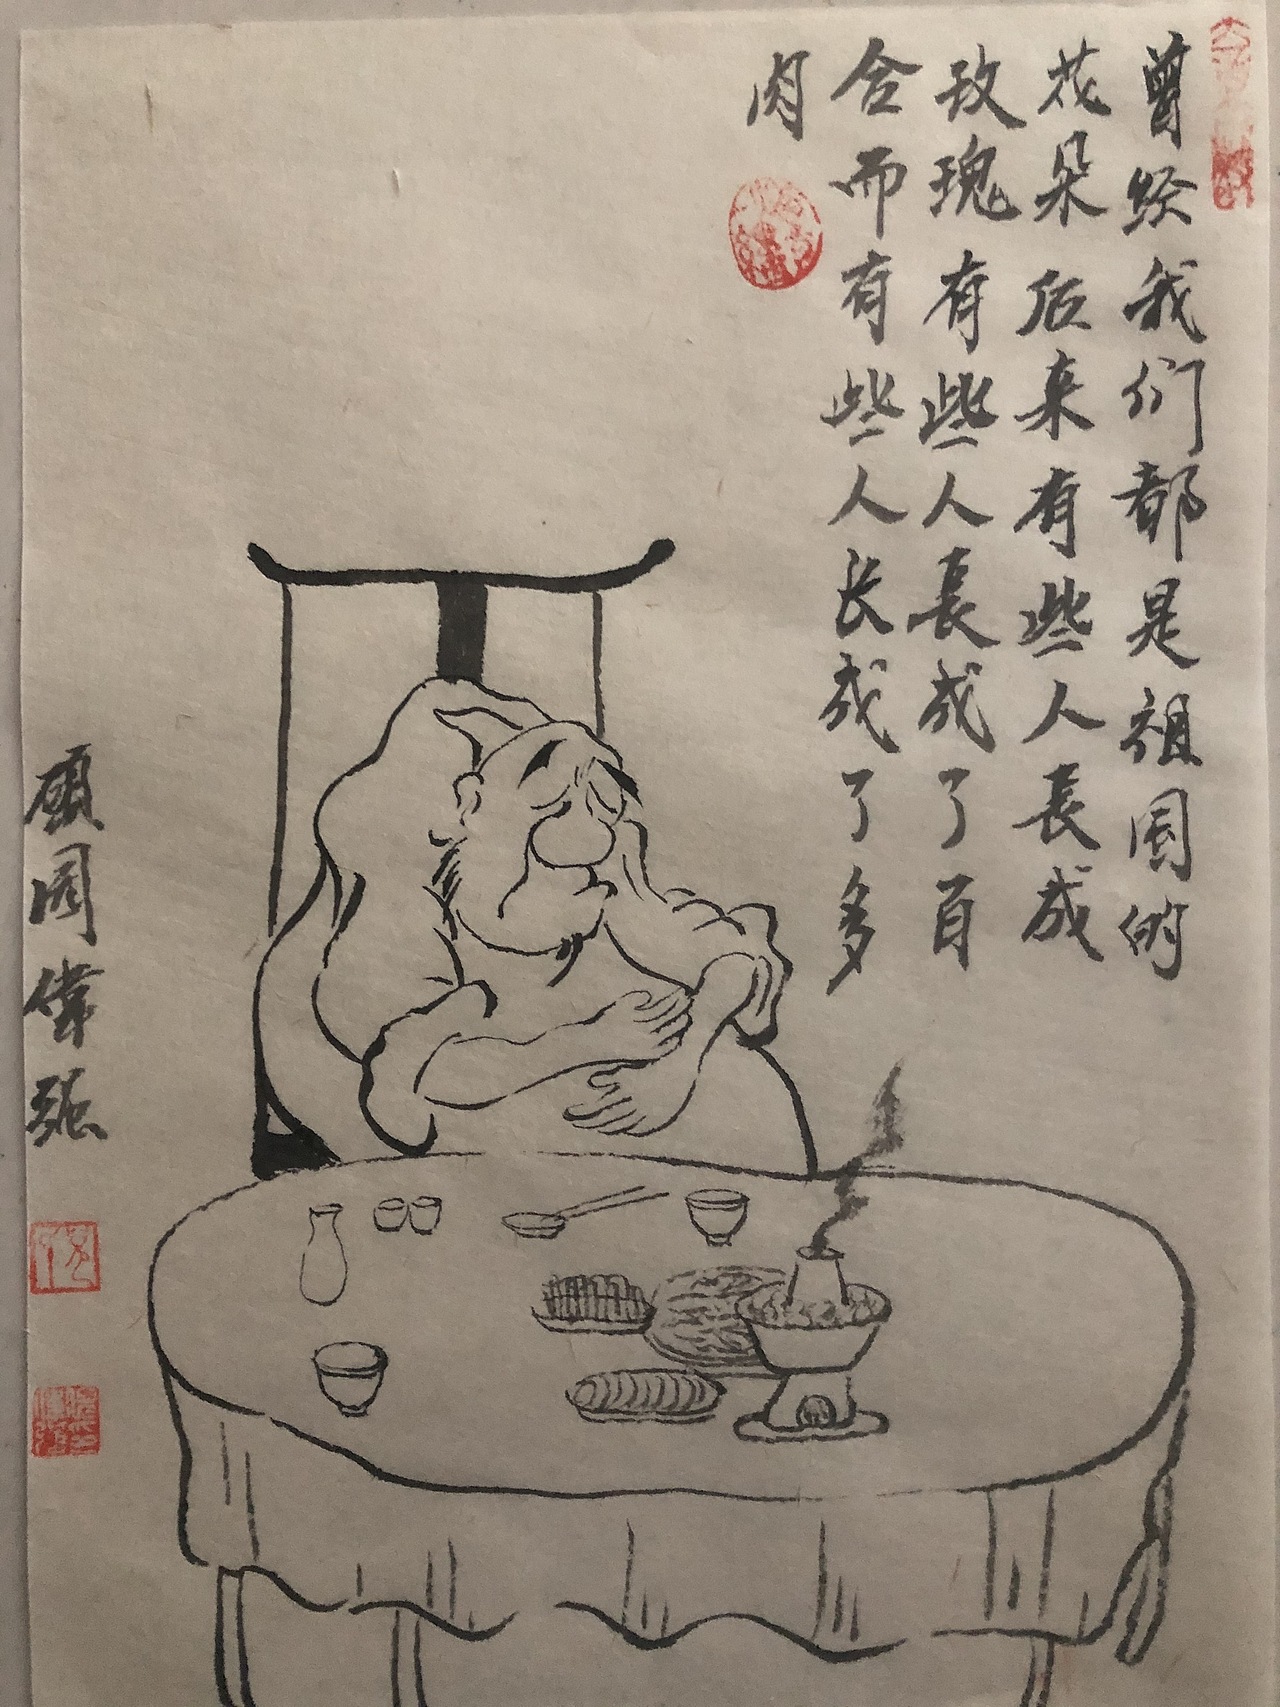 曾经我们都是祖国的
花朵后来有些人長成
玫瑰有些人長成了百
合而有些人长成了多
肉
顾国伟张